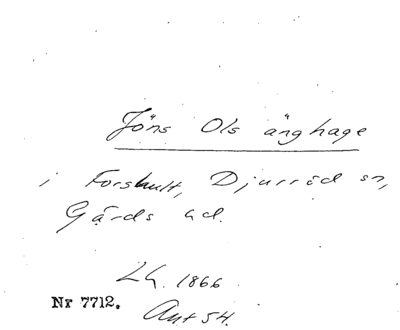 Jöns Ols änghage
i Forshult, Djurröd sn,
Gärds hd.
LG. 1866
Nr 7712.
Ant 54.